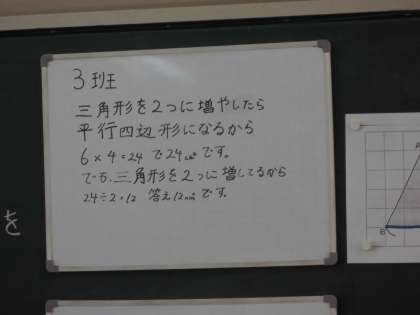 3班
三角形を2つに増やしたら
平行四辺形になるから
6×4=24 で24cm²です。
でも、三角形を2つに増してるから
24÷2=12 答え12cm²です。
を
A
B